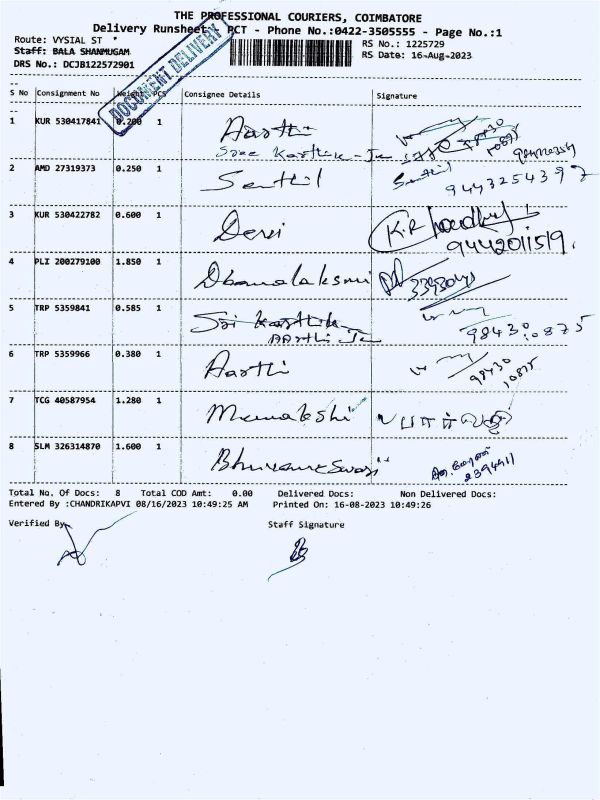 THE PROFESSIONAL COURIERS, COIMBATORE
Delivery Runsheet PCT - Phone No.:0422-3505555 - Page No.:1
Route: VYSIAL ST
RS No.: 1225729
Staff: BALA SHANMUGAM
RS Date: 16-Aug-2023
DRS No.: DCJB122572901
DOCUMENT DELIVERY
S No Consignment No Weight PCS Consignee Details Signature
1 KUR 530417841 0.200 1 Aarthi
Sree Karthik
2 AMD 27319373 0.250 1 Senthil Senthil
9443254397
3 KUR 530422782 0.600 1 Devi K.R
9442011519.
4 PLI 200279100 1.850 1 Dhanalaksmi
5 TRP 5359841 0.585 1 Sri Karthik
Aarthi 98430 10875
6 TRP 5359966 0.380 1 Aarthi 98430
10875
7 TCG 40587954 1.280 1
8 SLM 326314870 1.600 1
2394911
Total No. Of Docs: 8 Total COD Amt: 0.00 Delivered Docs: Non Delivered Docs:
Entered By :CHANDRIKAPVI 08/16/2023 10:49:25 AM Printed On: 16-08-2023 10:49:26
Verified By Staff Signature